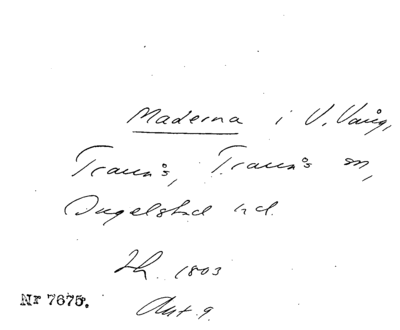 Maderna i V. Vång,
Tranås, Tranås sn,
Ingelstad hd.
Sk. 1803
Nr 7675.
Akt 9